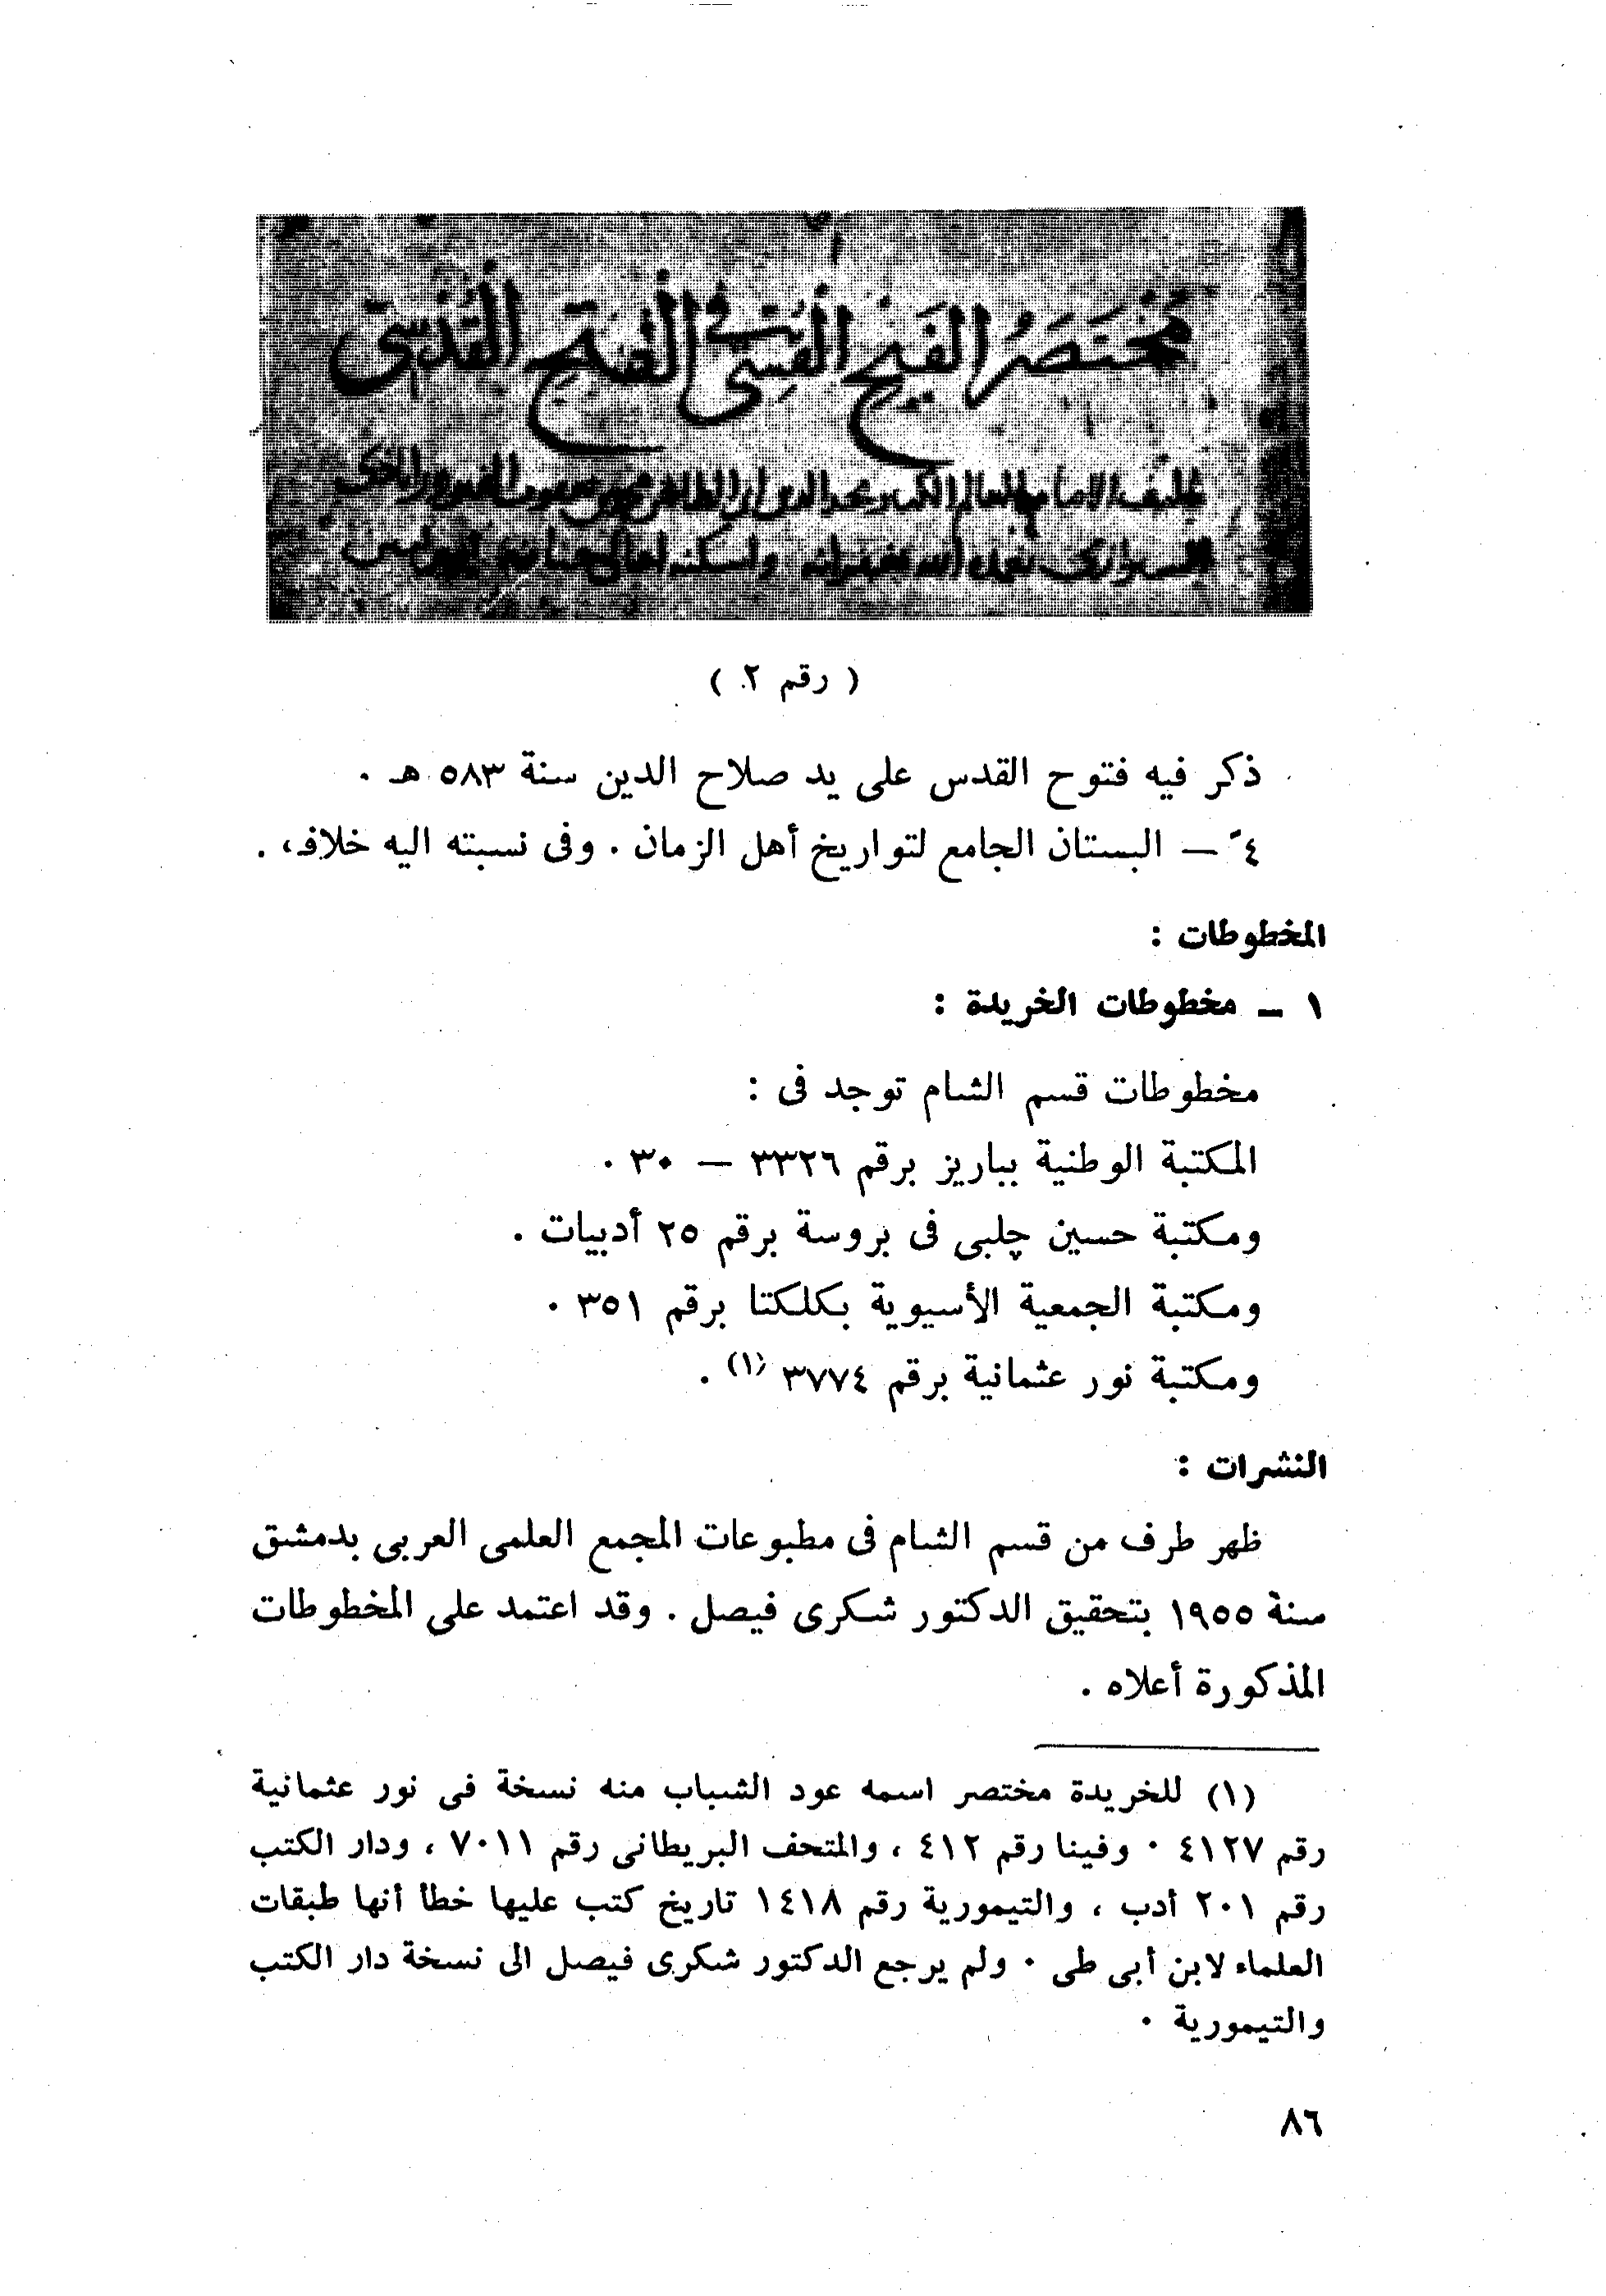 مُختصَرُ الفَيح القُسّى فى الفتح القُدسّى
الامام العالم مجد الدين ابى الطاهر محمد بن يعقوب الفيروزابادى
تغمده الله بغفرانه واسكنه
( رقم ٢ )
ذكر فيه فتوح القدس على يد صلاح الدين سنة ٥٨٣ هـ .
٤ — البستان الجامع لتواريخ أهل الزمان . وفى نسبته اليه خلاف .
المخطوطات :
١ – مخطوطات الخريدة :
مخطوطات قسم الشام توجد فى :
المكتبة الوطنية بباريز برقم ٣٣٢٦ — ٣٠ .
ومكتبة حسين چلبى فى بروسة برقم ٢٥ أدبيات .
ومكتبة الجمعية الأسيوية بكلكتا برقم ٣٥١ .
ومكتبة نور عثمانية برقم ٣٧٧٤ (١) .
النشرات :
ظهر طرف من قسم الشام فى مطبوعات المجمع العلمى العربى بدمشق
سنة ١٩٥٥ بتحقيق الدكتور شكرى فيصل . وقد اعتمد على المخطوطات
المذكورة أعلاه .
(١) للخريدة مختصر اسمه عود الشباب منه نسخة فى نور عثمانية
رقم ٤١٢٧ . وفينا رقم ٤١٢ ، والمتحف البريطانى رقم ٧٠١١ ، ودار الكتب
رقم ٢٠١ أدب ، والتيمورية رقم ١٤١٨ تاريخ كتب عليها خطأ أنها طبقات
العلماء لابن أبى طى . ولم يرجع الدكتور شكرى فيصل الى نسخة دار الكتب
والتيمورية .
٨٦